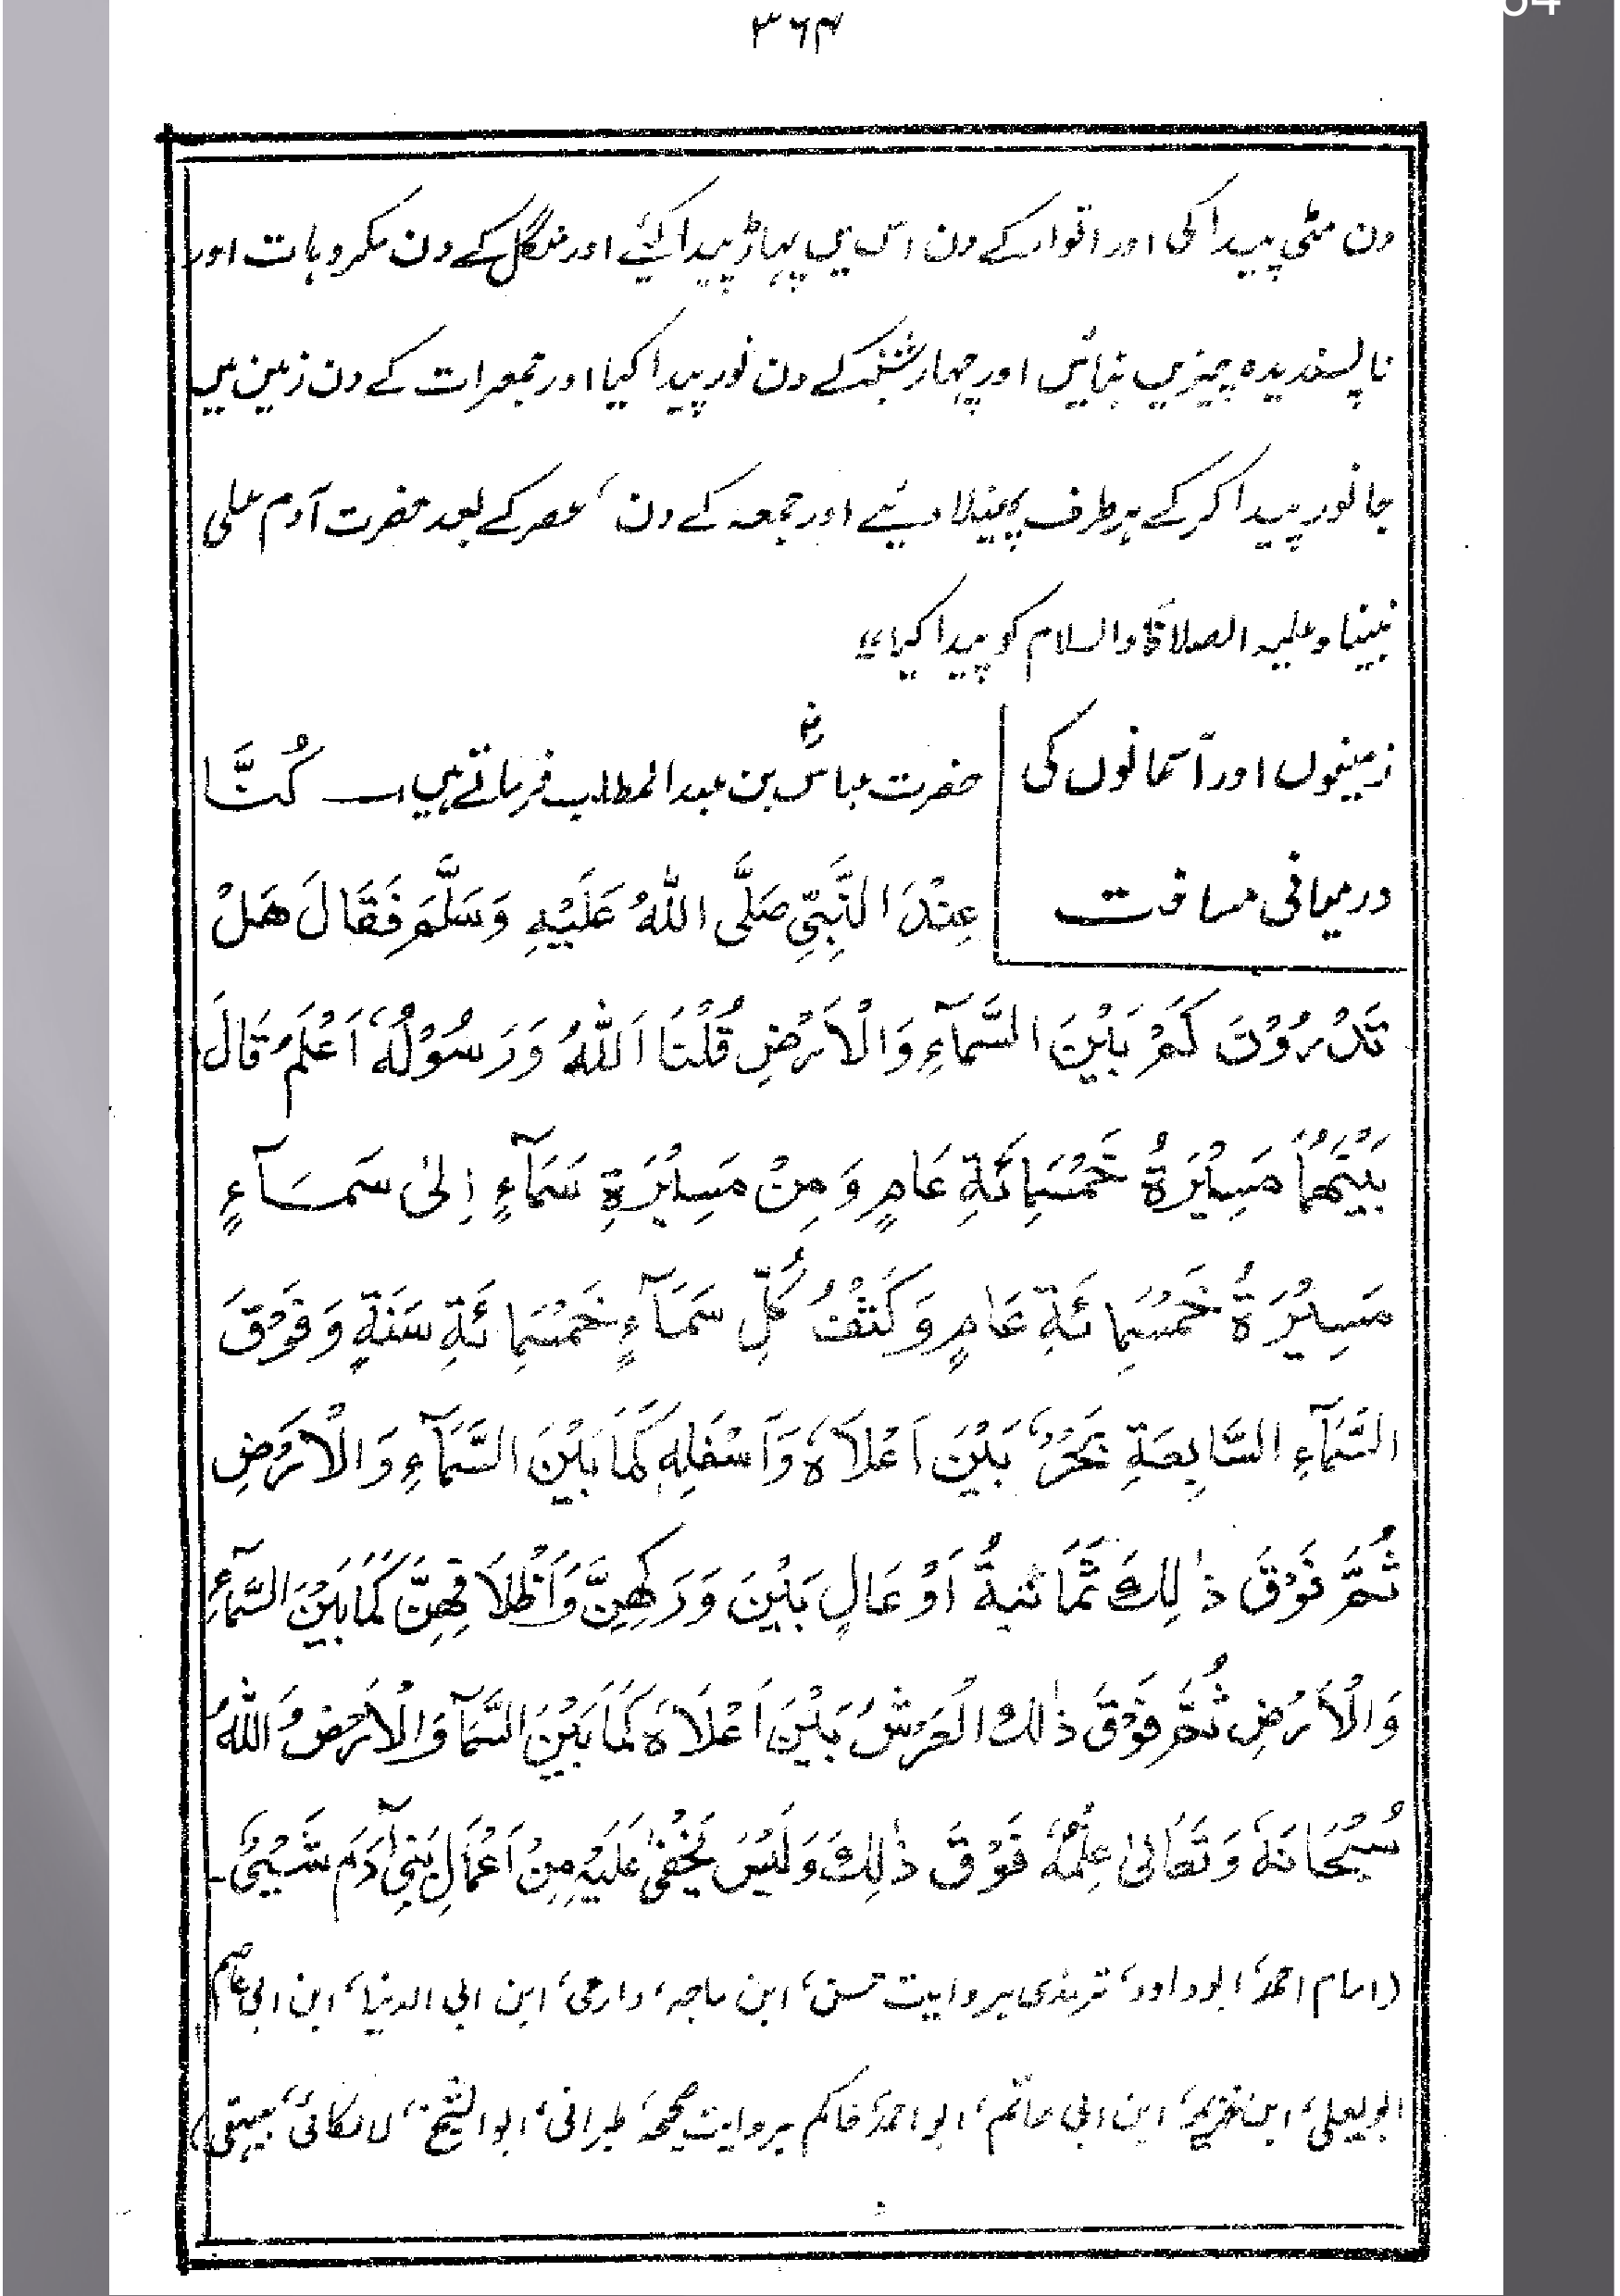 ۳۶۴
دن مٹی پیدا کی اور اتوار کے دن اس میں پہاڑ پیدا کیئے اور منگل کے دن مکروہات اور
ناپسندیدہ چیزیں بنائیں اور چہار شنبہ کے دن نور پیدا کیا اور جمعرات کے دن زمین میں
جانور پیدا کر کے ہر طرف پھیلا دیئے اور جمعہ کے دن، عصر کے بعد حضرت آدم علی
نبینا وعلیہ الصلاۃ والسلام کو پیدا کیا۔"
زمینوں اور آسمانوں کی
درمیانی مسافت
حضرت عباسؓ بن عبدالمطلب فرماتے ہیں۔ كُنَّا
عِنْدَ النَّبِيِّ صَلَّى اللهُ عَلَيْهِ وَسَلَّمَ فَقَالَ هَلْ
تَدْرُوْنَ كَمْ بَيْنَ السَّمَآءِ وَالْاَرْضِ قُلْنَا اَللهُ وَرَسُوْلُهٗ اَعْلَمُ قَالَ
بَيْنَهُمَا مَسِيْرَةُ خَمْسِمِائَةِ عَامٍ وَمِنْ مَسِيْرَةِ سَمَآءٍ اِلىٰ سَمَآءٍ
مَسِيْرَةُ خَمْسِمِائَةِ عَامٍ وَكَثْفُ كُلِّ سَمَآءٍ خَمْسِمِائَةِ سَنَةٍ وَفَوْقَ
السَّمَآءِ السَّابِعَةِ بَحْرٌ بَيْنَ اَعْلَاهُ وَاَسْفَلِهٖ كَمَا بَيْنَ السَّمَآءِ وَالْاَرْضِ
ثُمَّ فَوْقَ ذٰلِكَ ثَمَانِيَةُ اَوْعَالٍ بَيْنَ وَرَكِهِنَّ وَاَظْلَافِهِنَّ كَمَا بَيْنَ السَّمَآءِ
وَالْاَرْضِ ثُمَّ فَوْقَ ذٰلِكَ الْعَرْشُ بَيْنَ اَعْلَاهُ كَمَا بَيْنَ السَّمَآ وَالْاَرْضُ وَاللهُ
سُبْحَانَهٗ وَتَعَالىٰ عِلْمُهٗ فَوْقَ ذٰلِكَ وَلَيْسَ يَخْفىٰ عَلَيْهِ مِنْ اَعْمَالِ بَنِيْ آدَمَ شَيْئٌ۔
(امام احمدؒ، ابوداود، ترمذی بروایت حسن، ابن ماجہ، دارمی، ابن ابی الدنیا، ابن ابی عاصم
ابویعلی، ابن خزیمہ، ابن ابی حاتم، ابو احمدؒ حاکم بروایت صحیحہ، طبرانی، ابو الشیخؒ، لالکائی، بیہقی)